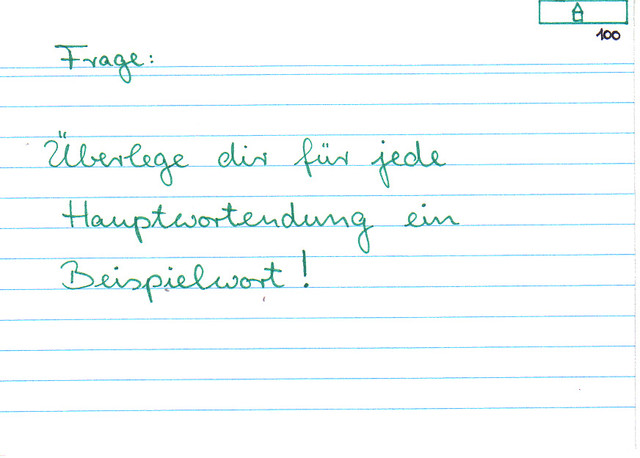 100
Frage:
Überlege dir für jede
Hauptwortendung ein
Beispielwort!